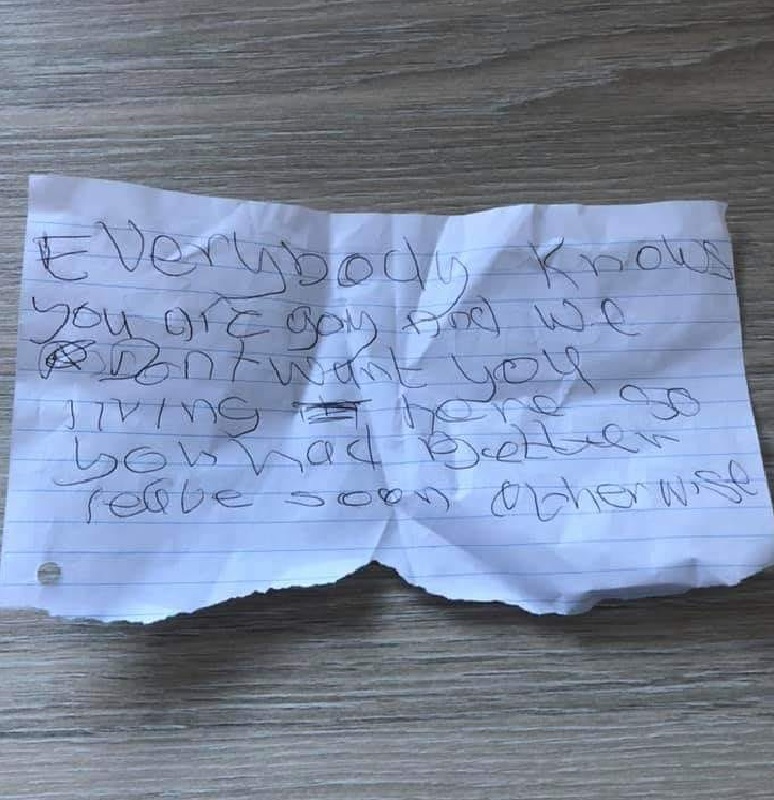 Everybody knows
you are gay And we
Dont want you
living here so
you had better
leave soon otherwise